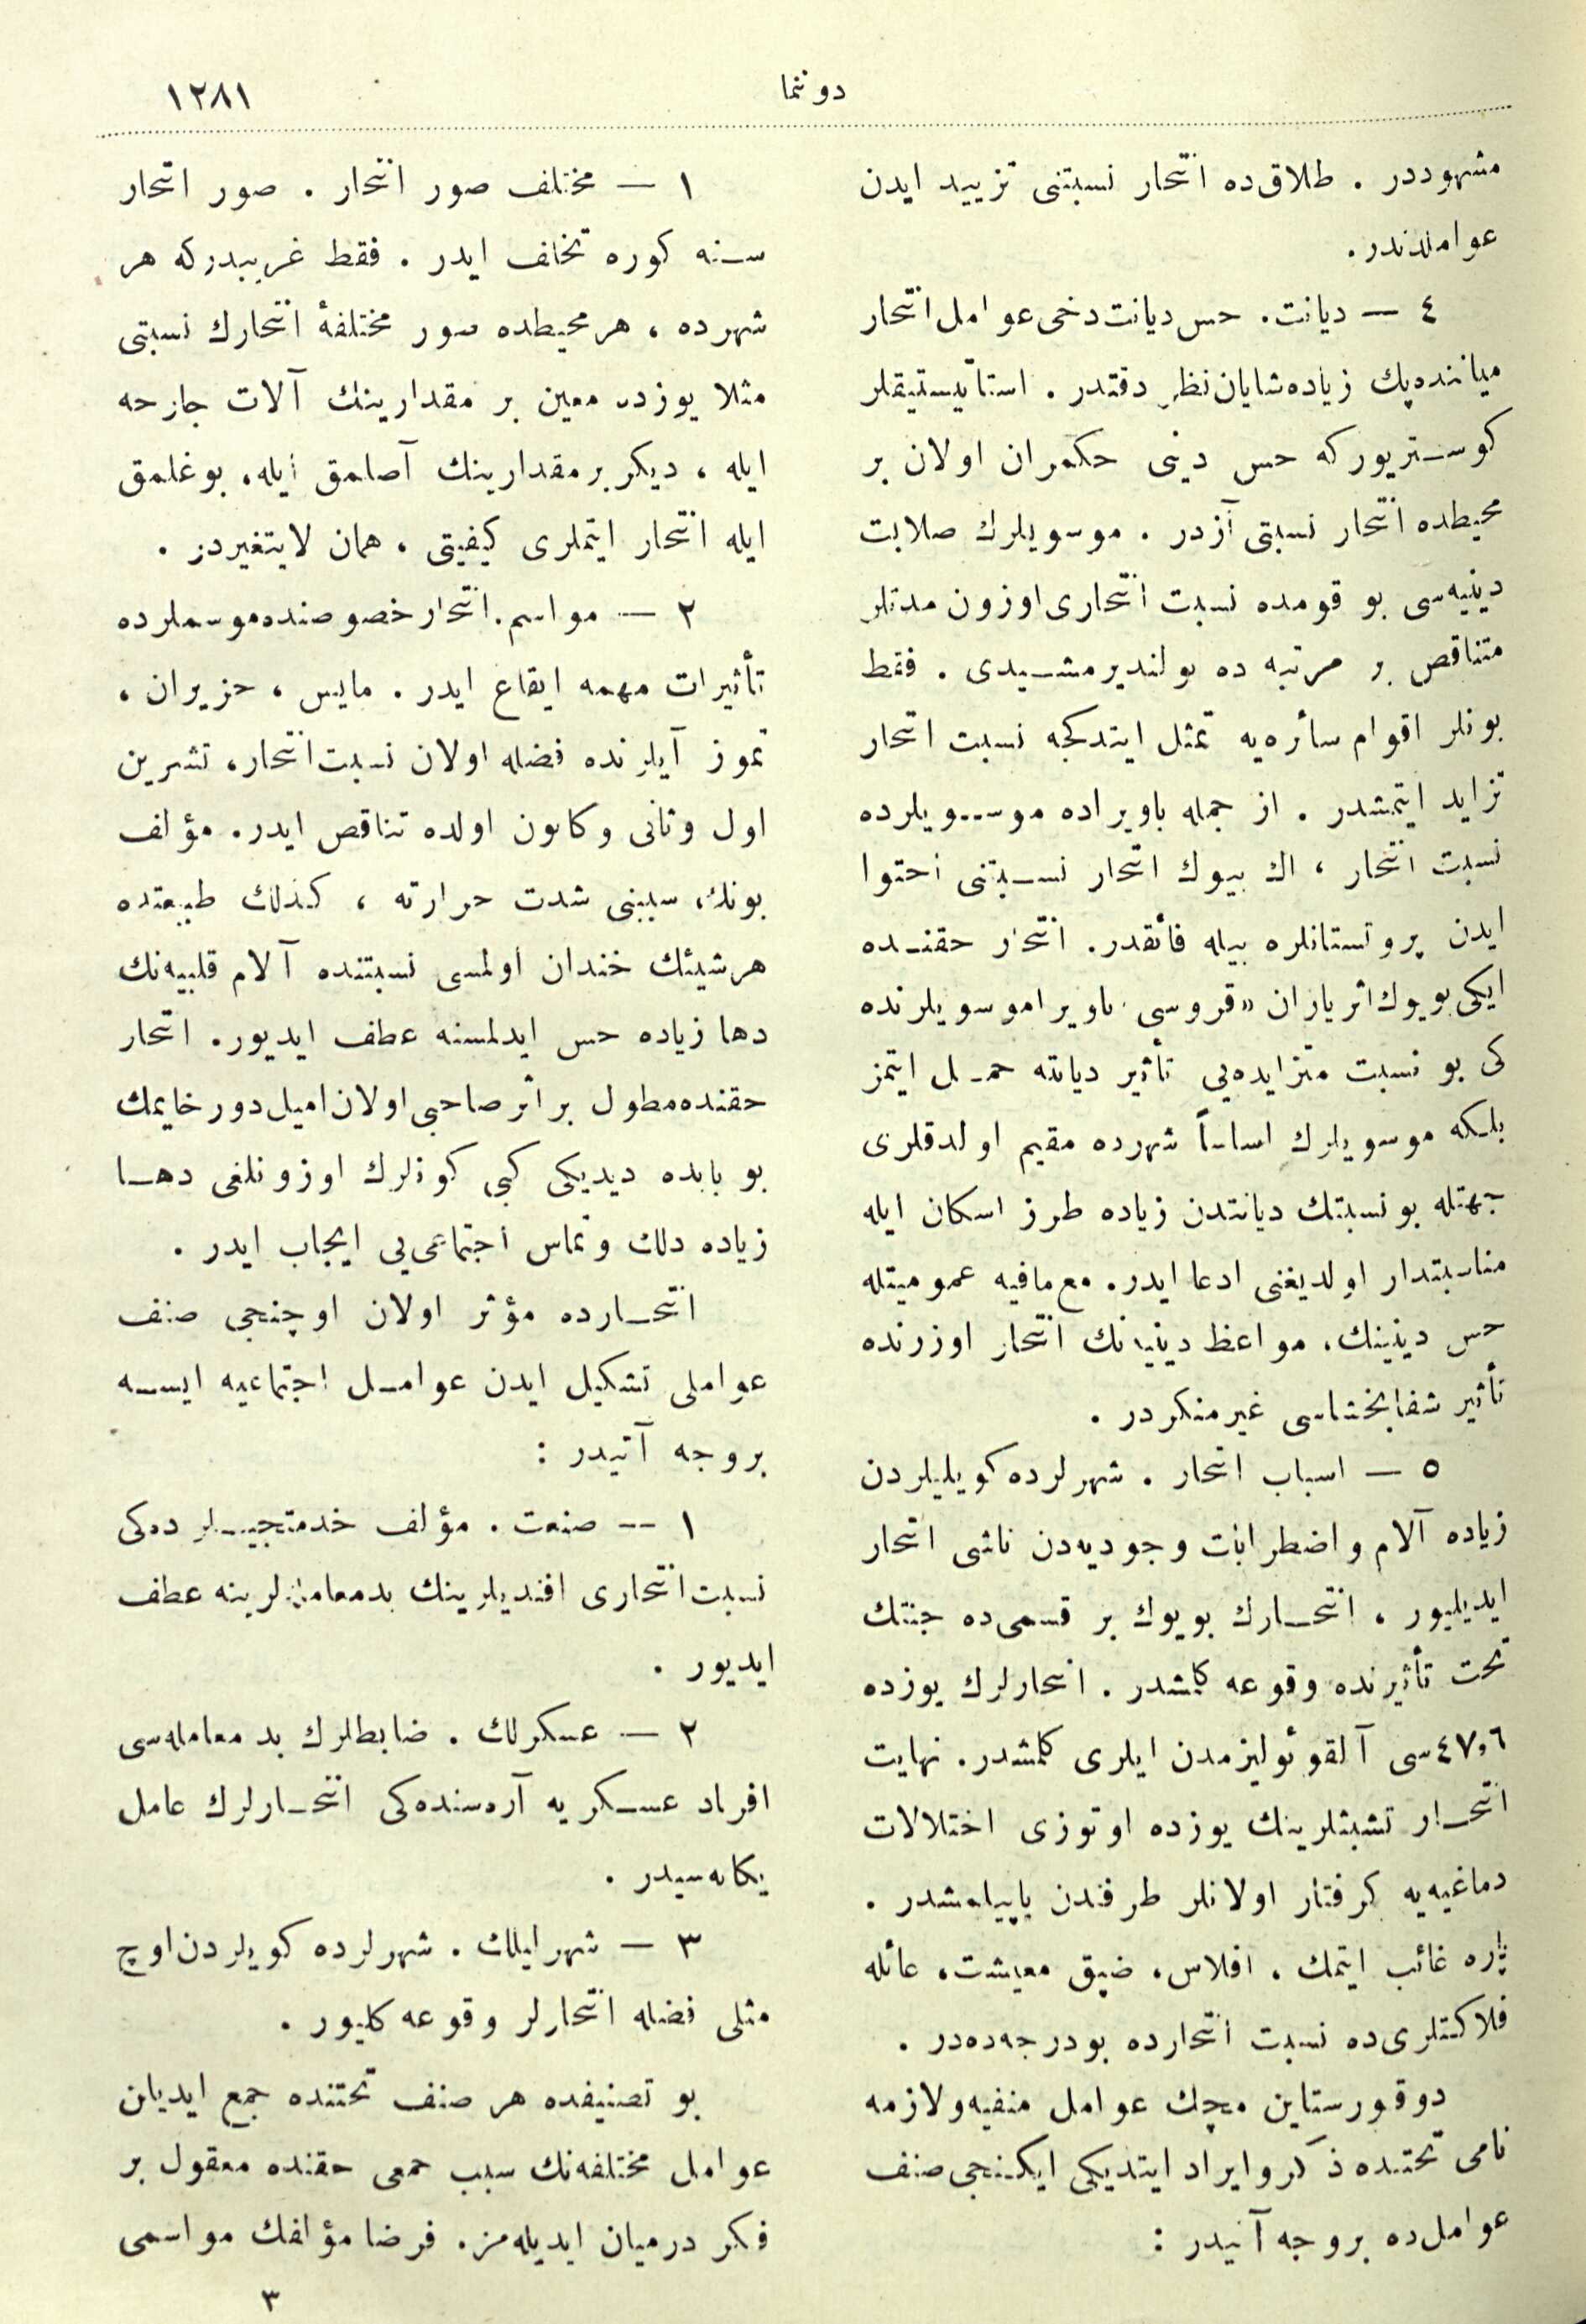 دوننما
١٢٨١
مشهوددر . طلاق‌ده انتحار نسبتنی تزیید ایدن
عواملدندر.
٤ — دیانت. حس دیانت دخی عوامل انتحار
میاننده‌پك زیاده‌شایان‌نظر دقتدر . استاتیستیقلر
كوستریوركه حس دینی حكمران اولان بر
محیطده انتحار نسبتی آزدر . موسویلرك صلابت
دینیه‌سی بو قومده نسبت انتحاری اوزون مدتلر
متناقص بر مرتبه ده بولندیرمشیدی . فقط
بونلر اقوام سائره‌یه تمثل ایتدكجه نسبت انتحار
تزاید ایتمشدر . از جمله باویراده موسویلرده
نسبت انتحار ، اك بیوك انتحار نسبتنی احتوا
ایدن پروتستانلره بیله فائقدر. انتحار حقنده
ایكی بویوك‌اثر یازان «قروسی» باویرا موسویلرنده
كی بو نسبت متزایده‌یی تأثیر دیانته حمل ایتمز
بلكه موسویلرك اساساً شهرده مقیم اولدقلری
جهتله بو نسبتك دیانتدن زیاده طرز اسكان ایله
مناسبتدار اولدیغنی ادعا ایدر. مع‌مافیه عمومیتله
حس دینینك، مواعظ دینیه‌نك انتحار اوزرنده
تأثیر شفابخشاسی غیرمنكردر .
٥ — اسباب انتحار . شهرلرده كویلیلردن
زیاده آلام واضطرابات وجودیه‌دن ناشی انتحار
ایدیلیور ، انتحارك بویوك بر قسمی‌ده جنتك
تحت تأثیرنده وقوعه كلمشدر . انتحارلرك یوزده
٤٧,٦سی آلقوئولیزمدن ایلری كلمشدر. نهایت
انتحار تشبثلرینك یوزده اوتوزی اختلالات
دماغیه‌یه كرفتار اولانلر طرفندن یاپیلمشدر .
پاره غائب ایتمك ، افلاس، ضیق معیشت، عائله
فلاكتلری‌ده نسبت انتحارده بودرجه‌ده‌در .
دوقور ستاین مچك عوامل منفیه‌ولازمه
نامی تحتنده ذكر وایراد ایتدیكی ایكنجی صنف
عوامل‌ده بروجه آتیدر :
١ — مختلف صور انتحار . صور انتحار
سنه كوره تخالف ایدر . فقط غریبدركه هر
شهرده ، هر محیطده صور مختلفهٔ انتحارك نسبتی
مثلا یوزده معین بر مقدارینك آلات جارحه
ایله ، دیكر بر مقدارینك آصلمق ایله، بوغلمق
ایله انتحار ایتملری كیفیتی ، همان لایتغیردر .
٢ — مواسم. انتحار خصوصنده‌موسملرده
تأثیرات مهمه ایقاع ایدر . مایس ، حزیران ،
تموز آیلرنده فضله اولان نسبت‌انتحار، تشرین
اول وثانی وكانون اولده تناقص ایدر. مؤلف
بونك، سببنی شدت حرارته ، كذلك طبیعتده
هرشیئك خندان اولمسی نسبتنده آلام قلبیه‌نك
دها زیاده حس ایدلمسنه عطف ایدیور. انتحار
حقنده‌مطول بر اثر صاحبی‌اولان‌امیل‌دورخایمك
بو بابده دیدیكی كبی كونلرك اوزونلغی دها
زیاده دلك وتماس اجتماعی‌یی ایجاب ایدر .
انتحارده مؤثر اولان اوچنجی صنف
عواملی تشكیل ایدن عوامل اجتماعیه ایسه
بروجه آتیدر :
١ — صنعت . مؤلف خدمتجیلرده‌كی
نسبت‌انتحاری افندیلرینك بدمعامله‌لرینه عطف
ایدیور .
٢ — عسكرلك . ضابطلرك بد معامله‌سی
افراد عسكریه آره‌سنده‌كی انتحارلرك عامل
یكانه‌سیدر .
٣ — شهرلیلك . شهرلرده كویلردن‌اوچ
مثلی فضله انتحارلر وقوعه كلیور .
بو تصنیفده هر صنف تحتنده جمع ایدیلن
عوامل مختلفه‌نك سبب جمعی حقنده معقول بر
فكر درمیان ایدیله‌مز. فرضا مؤلفك مواسمی
٣